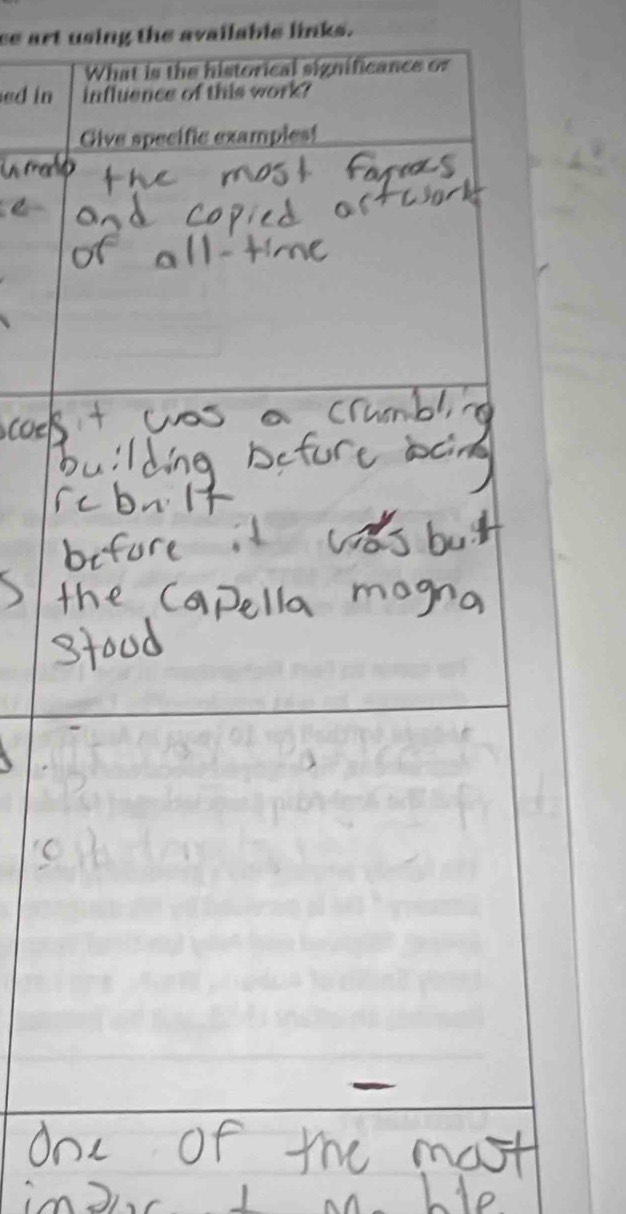 ce art using the available links.
What is the historical significance or
ed in influence of this work?
Give specific examples!
the most famous
and copied artwork
of all-time
it was a crumbling
building before being
rebuilt
before it was buit
s the Capella magna
stood
One of the most